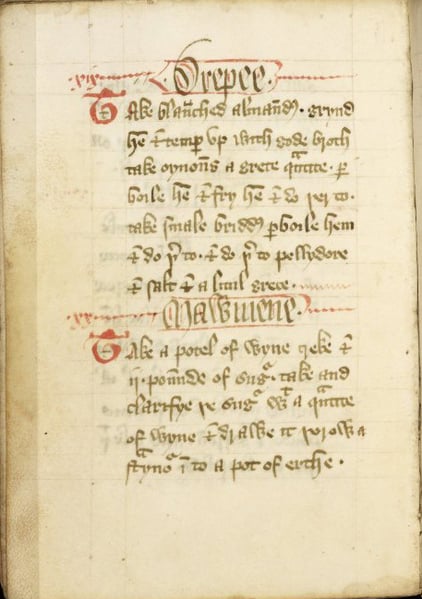 xix Drepee.
Take blanched almandes. grynd
hem & temper up with gode broth
take oynons a grete quantite. per
boile hem & fry hem & do þerto.
take smale briddes perboile hem
& do þerto. & do þerto pellydore
& salt & a litul grece.
xx Mawmene.
Take a potel of wyne greke &
ii. pounde of sugur. take and
clarifye þe sugur with a quantite
of wyne & drawe it þorowe a
straynour into a pot of erthe.